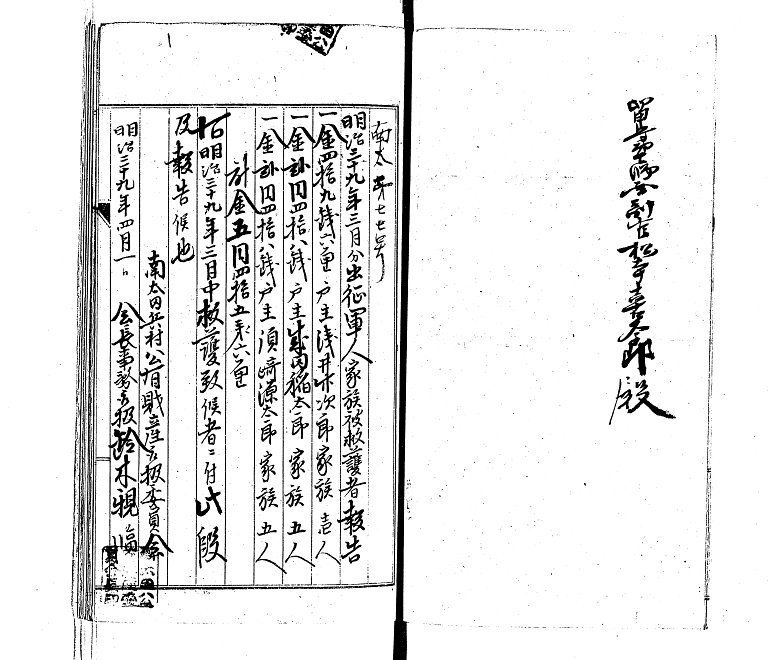 南太第七七号
明治三十九年三月分出征軍人家族被救護者報告
一金四拾九銭六厘 戸主浅井 次郎家族壱人
一金弐円四拾八銭 戸主 内稲太郎家族五人
一金弐円四拾八銭 戸主須崎源太郎家族五人
計金五円四拾五銭六厘
右明治三十九年三月中救護致候者ニ付此段
及報告候也
南太田 村公有財産 扱委員会
明治三十九年四月一日 会長事務取扱鈴木
太郎殿